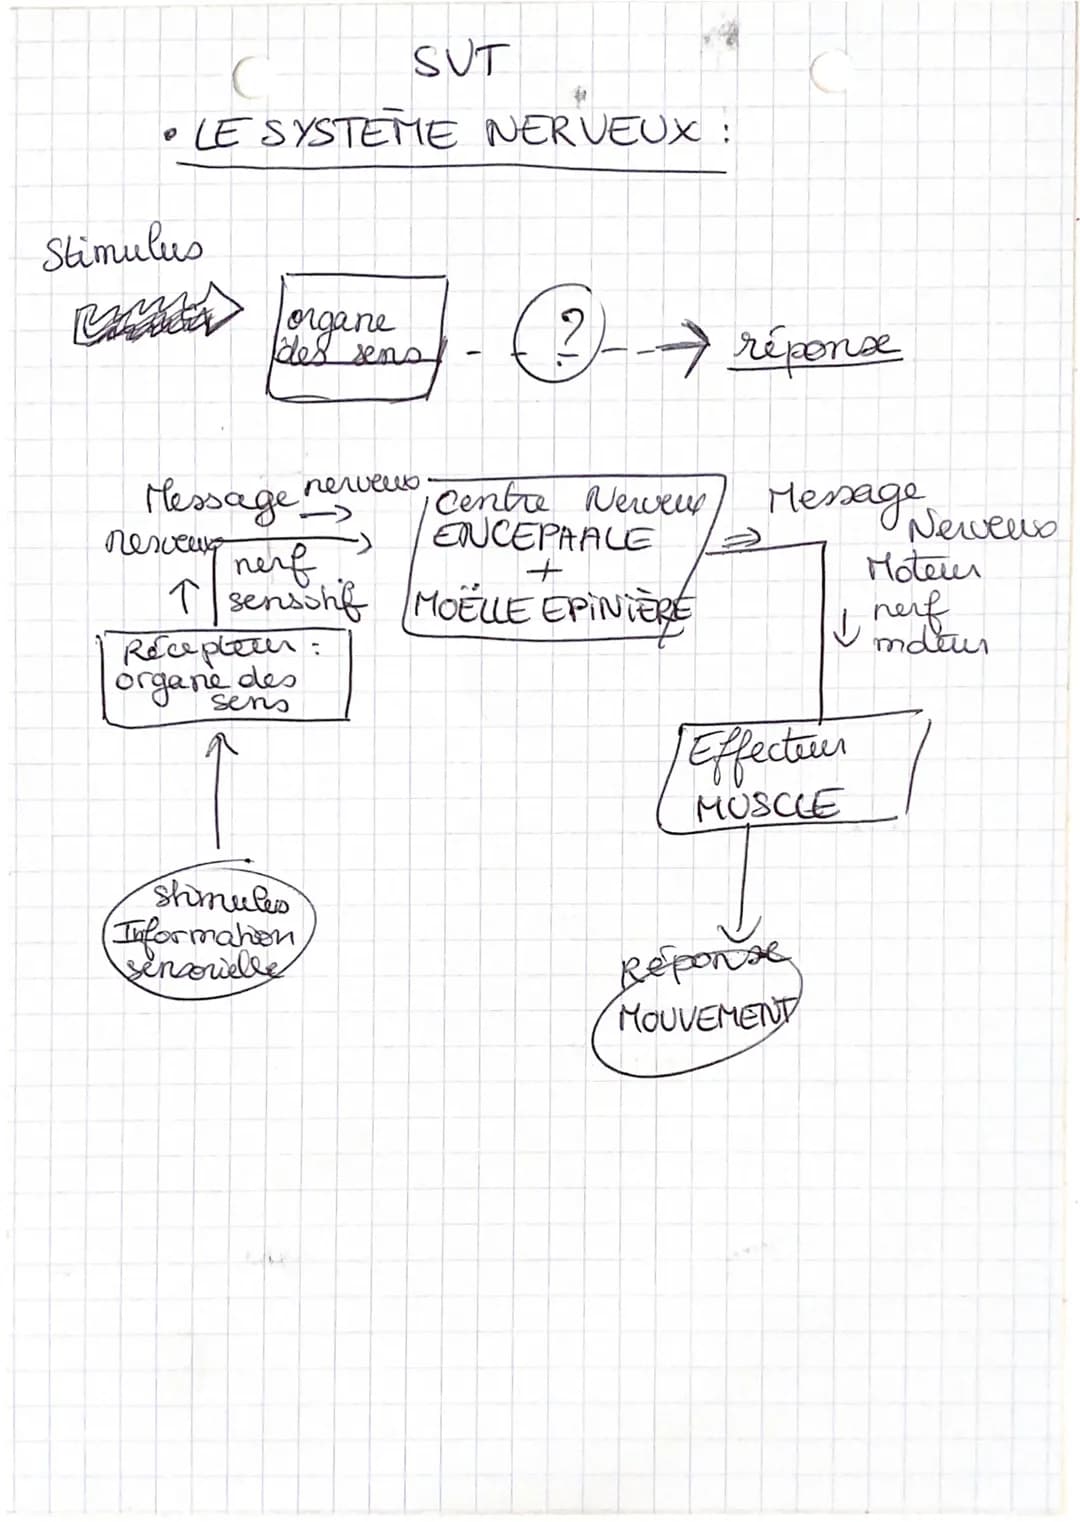 SVT
• LE SYSTEME NERVEUX :
Stimulus
organe
des sens
?
réponse
Message nerveux
nerveux
nerf
sensitif
Récepteur :
organe des
sens
Stimulus
Information
sensorielle
Centre Nerveux
ENCEPAALE
+
MOËLLE EPINIÈRE
Message
Nerveux
Moteur
nerf
moteur
Effecteur
MUSCLE
Réponse
MOUVEMENT